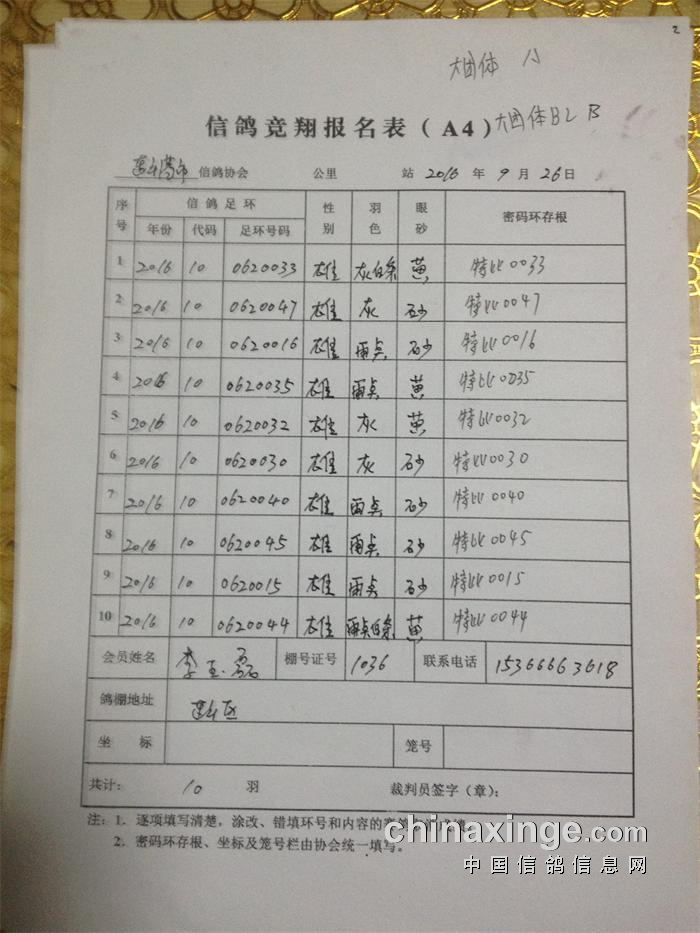 2
大团体 A
信鸽竞翔报名表（A4） 大团体B2 B
信鸽协会 公里 站 2016 年 9 月 26 日
序号 信鸽足环 性别 羽色 眼砂 密码环存根
年份 代码 足环号码
1 2016 10 0620033 雄 灰白条 黄 特比0033
2 2016 10 0620047 雄 灰 砂 特比0047
3 2016 10 0620016 雄 雨点 砂 特比0016
4 2016 10 0620035 雄 雨点 黄 特比0035
5 2016 10 0620032 雄 灰 黄 特比0032
6 2016 10 0620030 雄 灰 砂 特比0030
7 2016 10 0620040 雄 雨点 砂 特比0040
8 2016 10 0620045 雄 雨点 砂 特比0045
9 2016 10 0620015 雄 雨点 砂 特比0015
10 2016 10 0620044 雄 雨点白条 黄 特比0044
会员姓名 李玉磊 棚号证号 1036 联系电话 15366663618
鸽棚地址
坐 标 笼号
共计： 10 羽 裁判员签字（章）：
注：1．逐项填写清楚，涂改、错填环号和内容的
2．密码环存根、坐标及笼号栏由协会统一填写。
chinaxinge.com
中国信鸽信息网